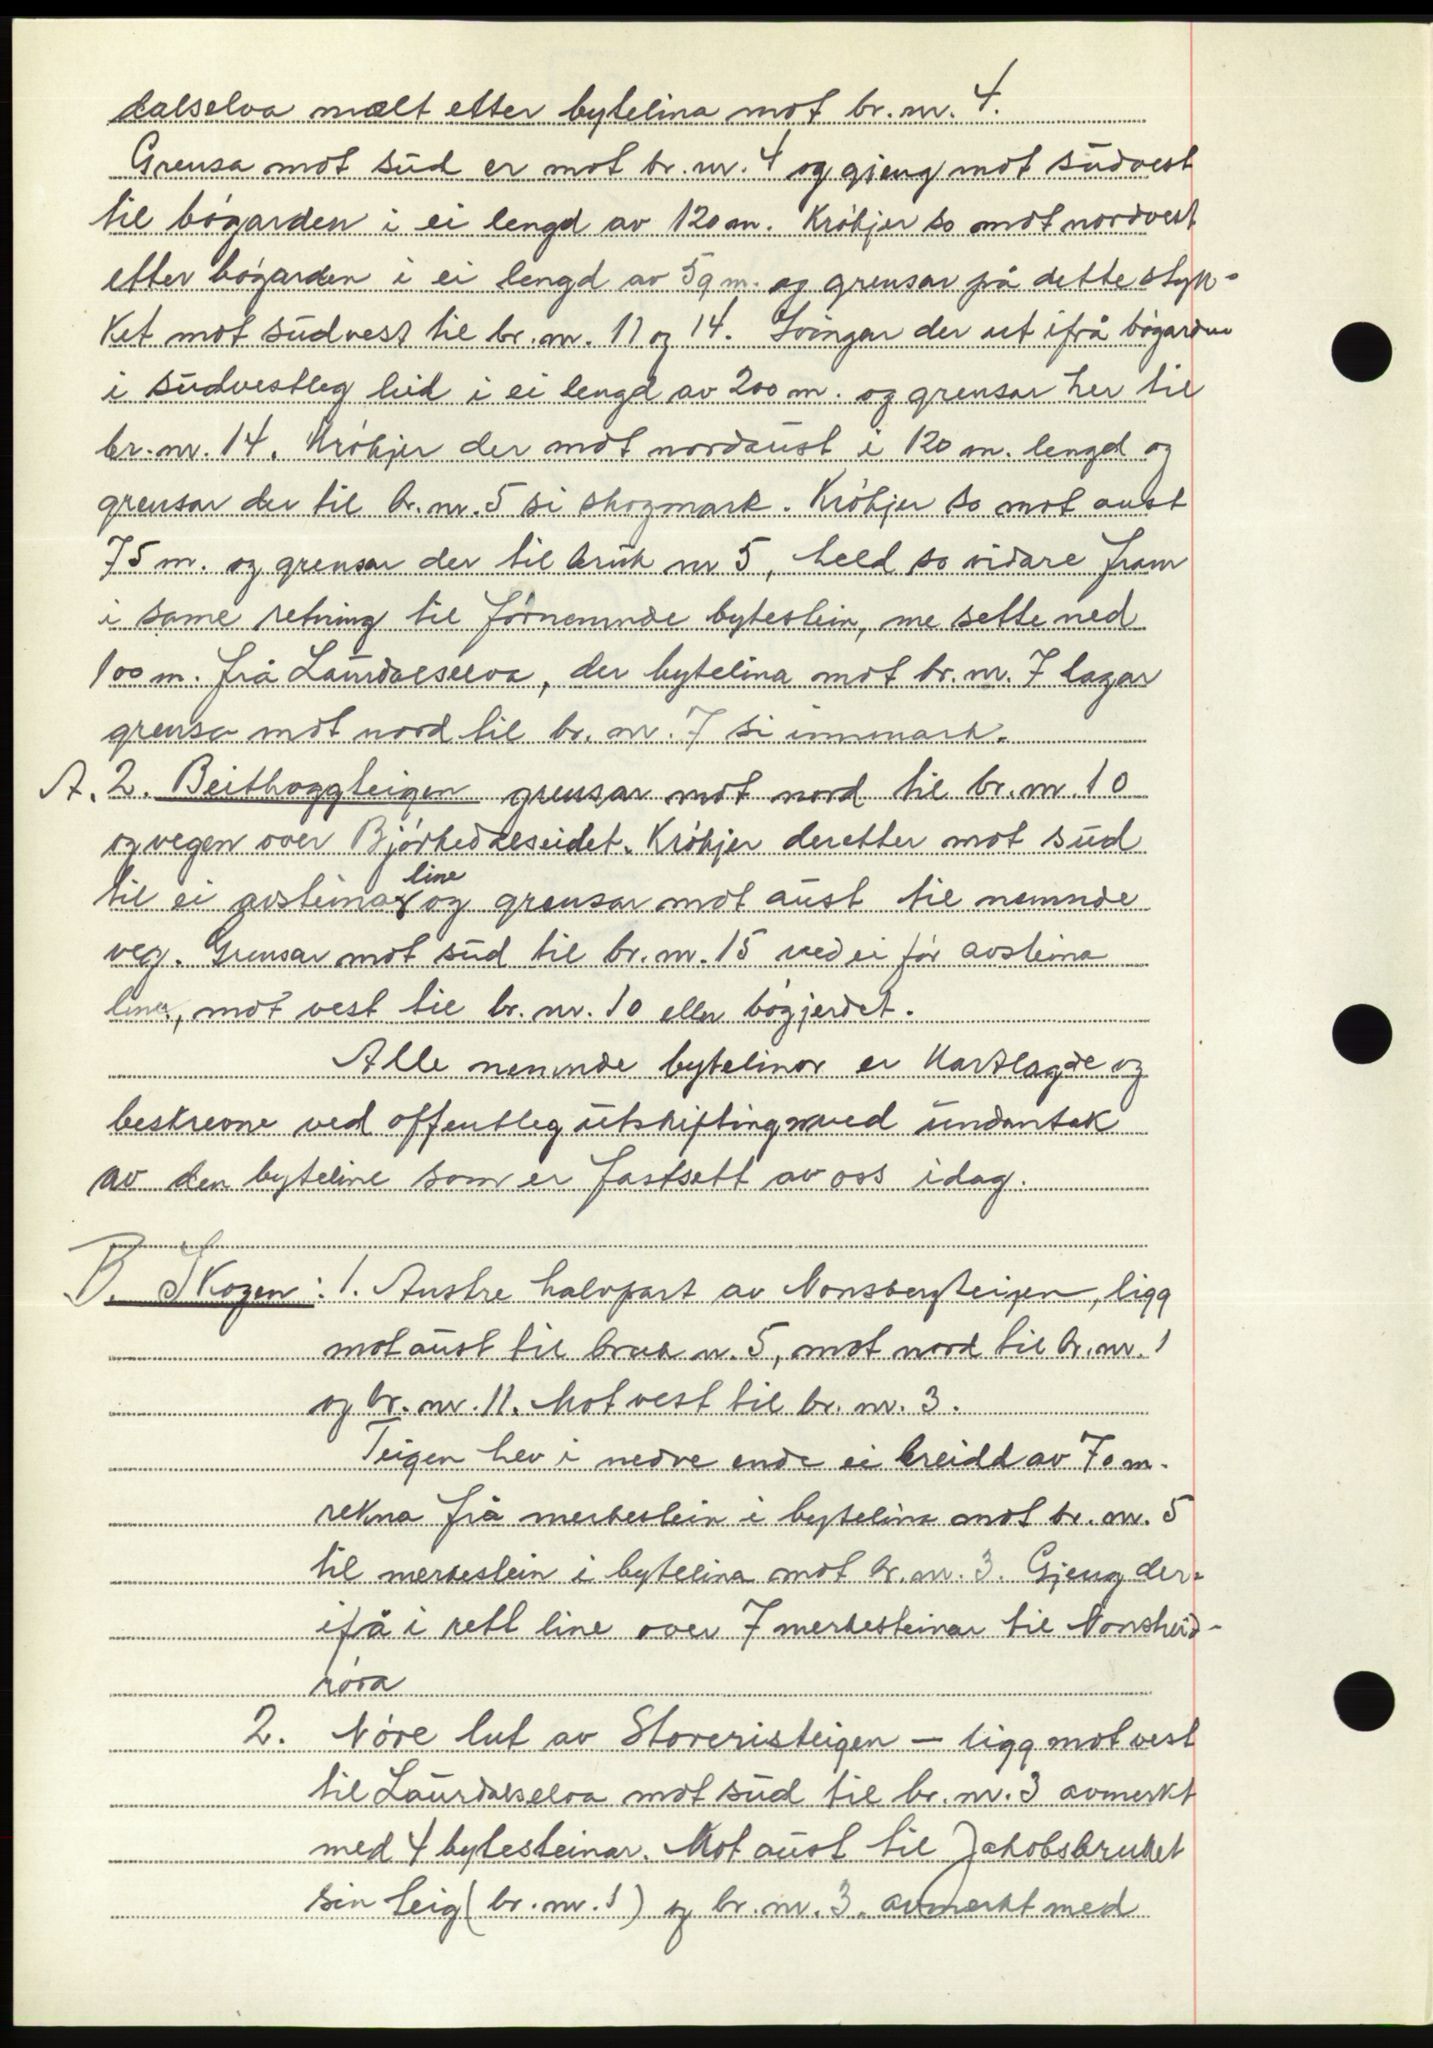 dalselva mælt etter bytelina mot br. nr. 4.
Grensa mot süd er mot br. nr. 4 og gjeng mot südvest
til bøgarden i ei lengd av 120 m. Krökjer so mot nordvest
etter bøgarden i ei lengd av 59 m. og grensar på dette styk-
ket mot südvest til br. nr. 11 og 14. Svingar der ut ifrå bøgarden
i südvestleg leid i ei lengd av 200 m. og grensar her til
br. nr. 14. Krökjer der mot nordaust i 120 m. lengd og
grensar der til br. nr. 5 si skogmark. Krökjer so mot aust
75 m. og grensar der til bruk nr 5, held so vidare fram
i same retning til førnemnde bytestein, me sette ned
100 m. frå Laurdalselva, der bytelina mot br. nr. 7 lagar
grensa mot nord til br. nr. 7 si innmark.
A. 2. Beithoggteigen grensar mot nord til br. nr. 10
og vegen over Bjørkedalseidet. Krökjer deretter mot süd
til ei avsteina line og grensar mot aust til nemnde
veg. Grensar mot süd til br. nr. 15 ved ei før avsteina
line, mot vest til br. nr. 10 eller bøgjerdet.
Alle nemnde bytelinor er kartlagde og
beskrevne ved offentleg ütskifting med ündantak
av den byteline som er fastsett av oss idag.
B. Skogen: 1. Austre halvpart av Nonsbergteigen, ligg
mot aust til bruk n. 5, mot nord til br. nr. 1
og br. nr. 11. Mot vest til br. nr. 3.
Teigen hev i nedre ende ei breidd av 70 m.
rekna frå merkestein i bytelina mot br. nr. 5
til merkestein i bytelina mot br. nr. 3. Gjeng der-
ifå i rett line over 7 merkesteinar til Nonsheid-
røra
2. Nøre lut av Storeristeigen — ligg mot vest
til Laurdalselva mot süd til br. nr. 3 avmerkt
med 4 bytesteinar. Mot aust til Jakobsbruket
sin teig (br. nr. 1) og br. nr. 3. avmerkt med